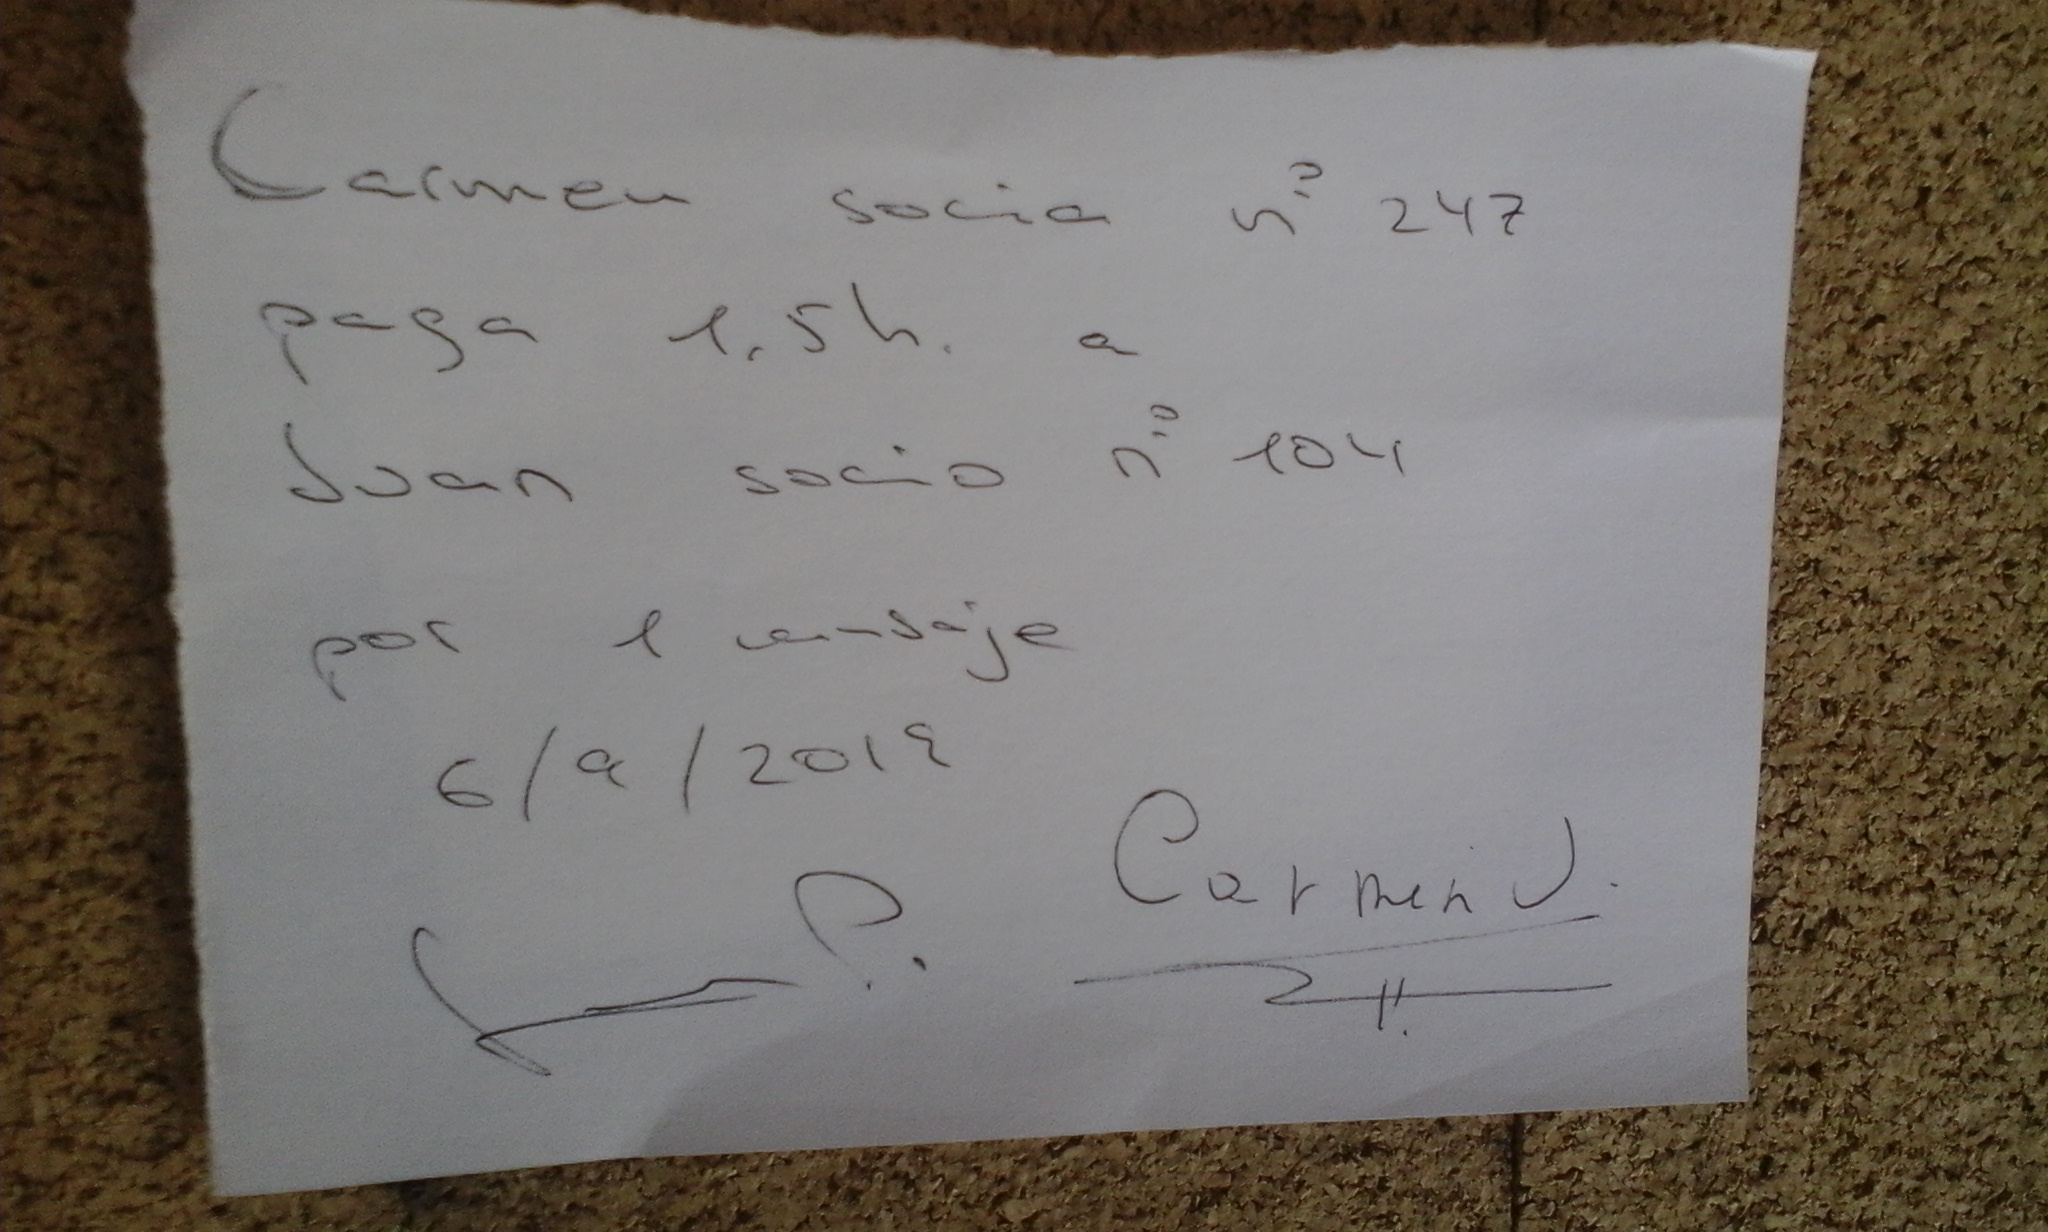 Carmen socia nº 247
paga 1,5h. a
Juan socio nº 104
por 1 masaje
6/9/2019
Carmen J.